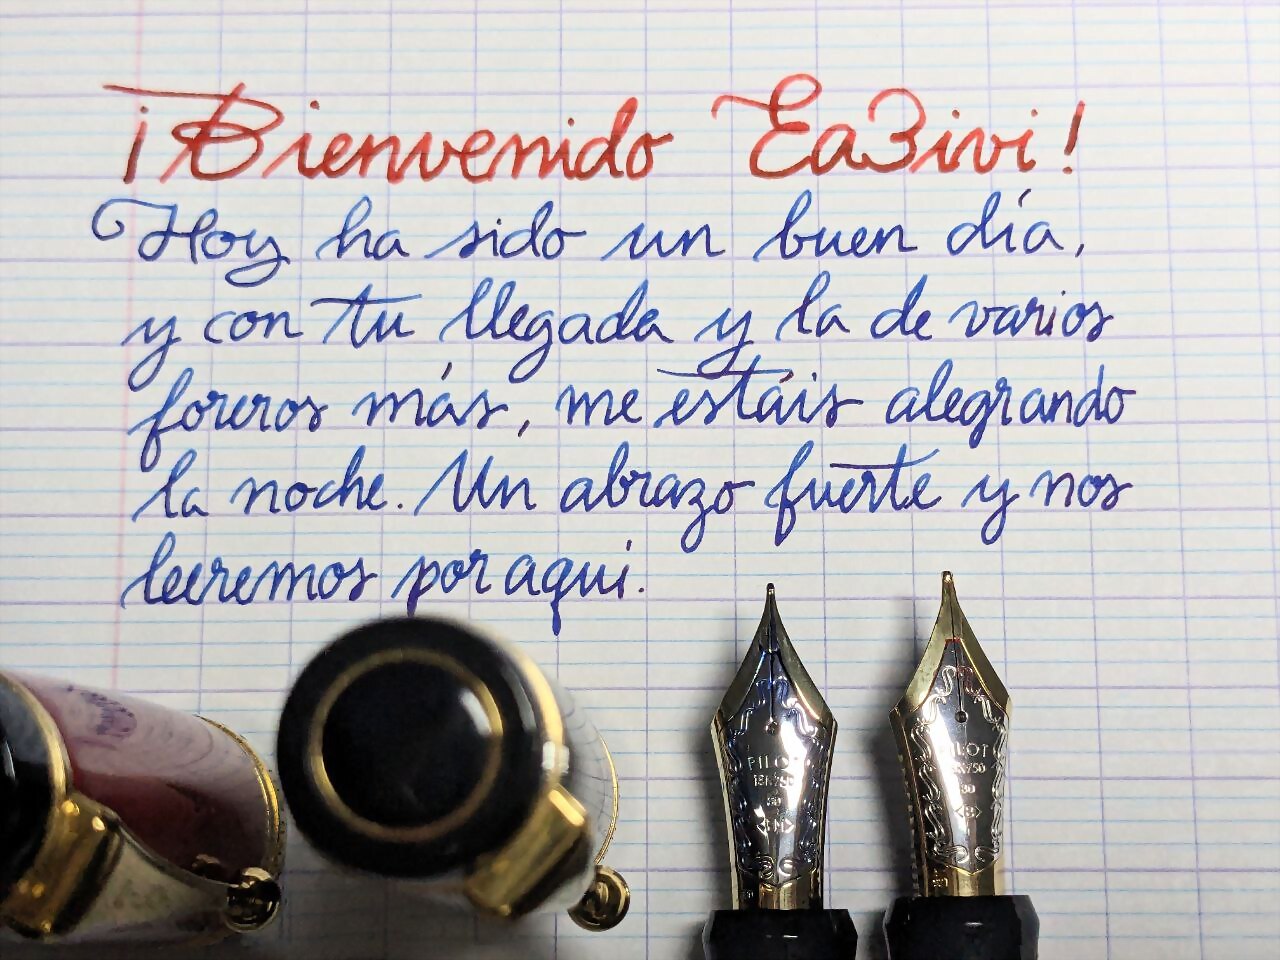 ¡Bienvenido Ea3ivi!
Hoy ha sido un buen día,
y con tu llegada y la de varios
foreros más, me estáis alegrando
la noche. Un abrazo fuerte y nos
leeremos por aquí.
PILOT
18K750
<M>
PILOT
18K750
<B>